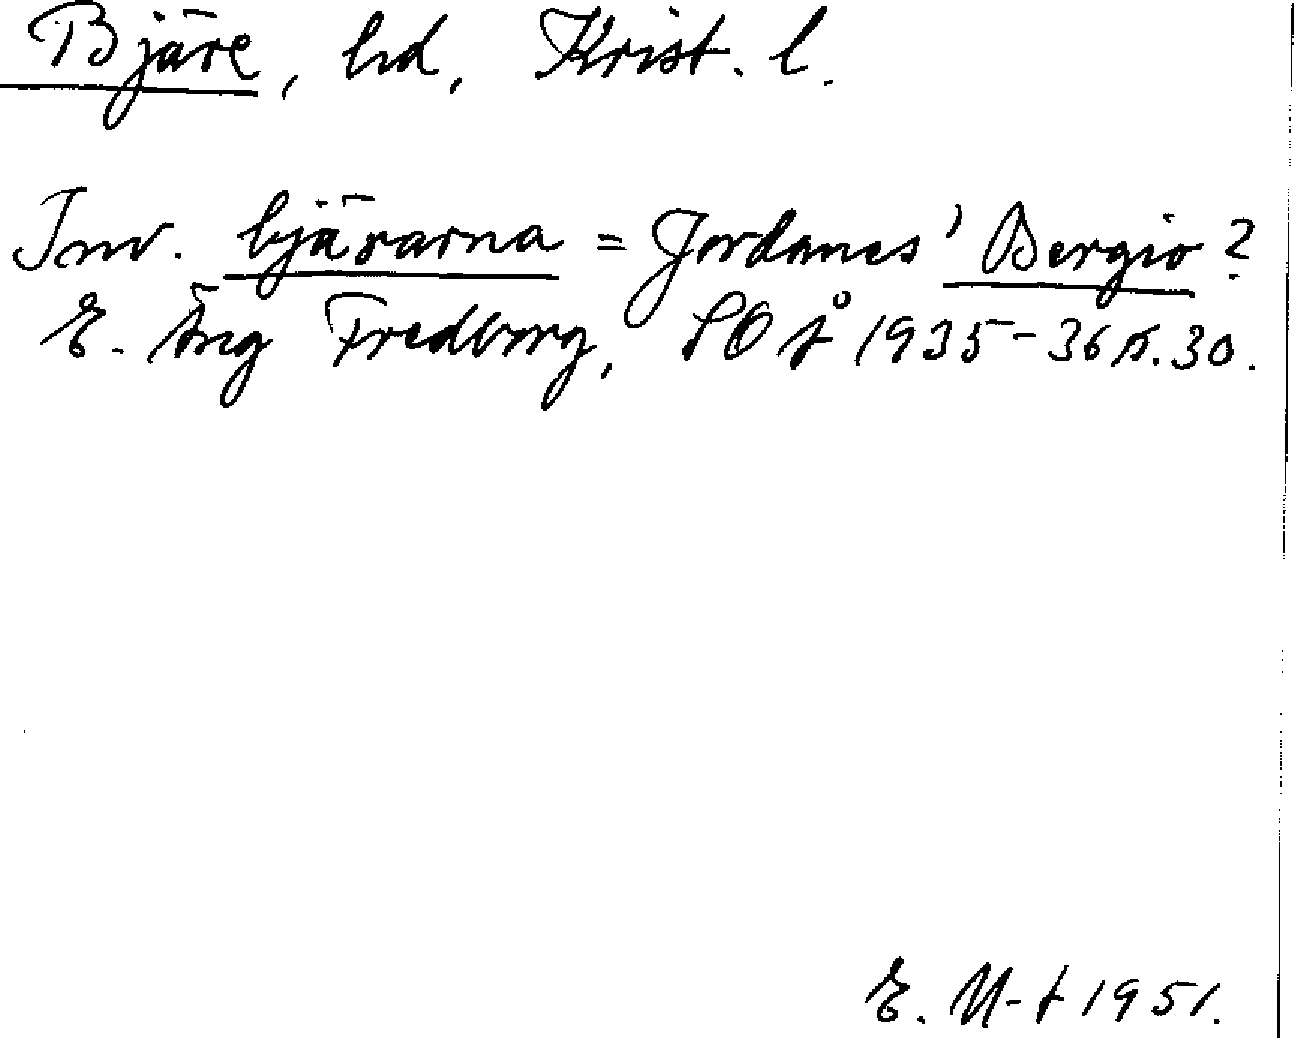 Bjäre, hd, Krist. l.
Inv. bjärarna = Jordanes' Bergio?
E. Äng Fredborg, SOÅ 1935-36 s. 30.
E. M-t 1951.